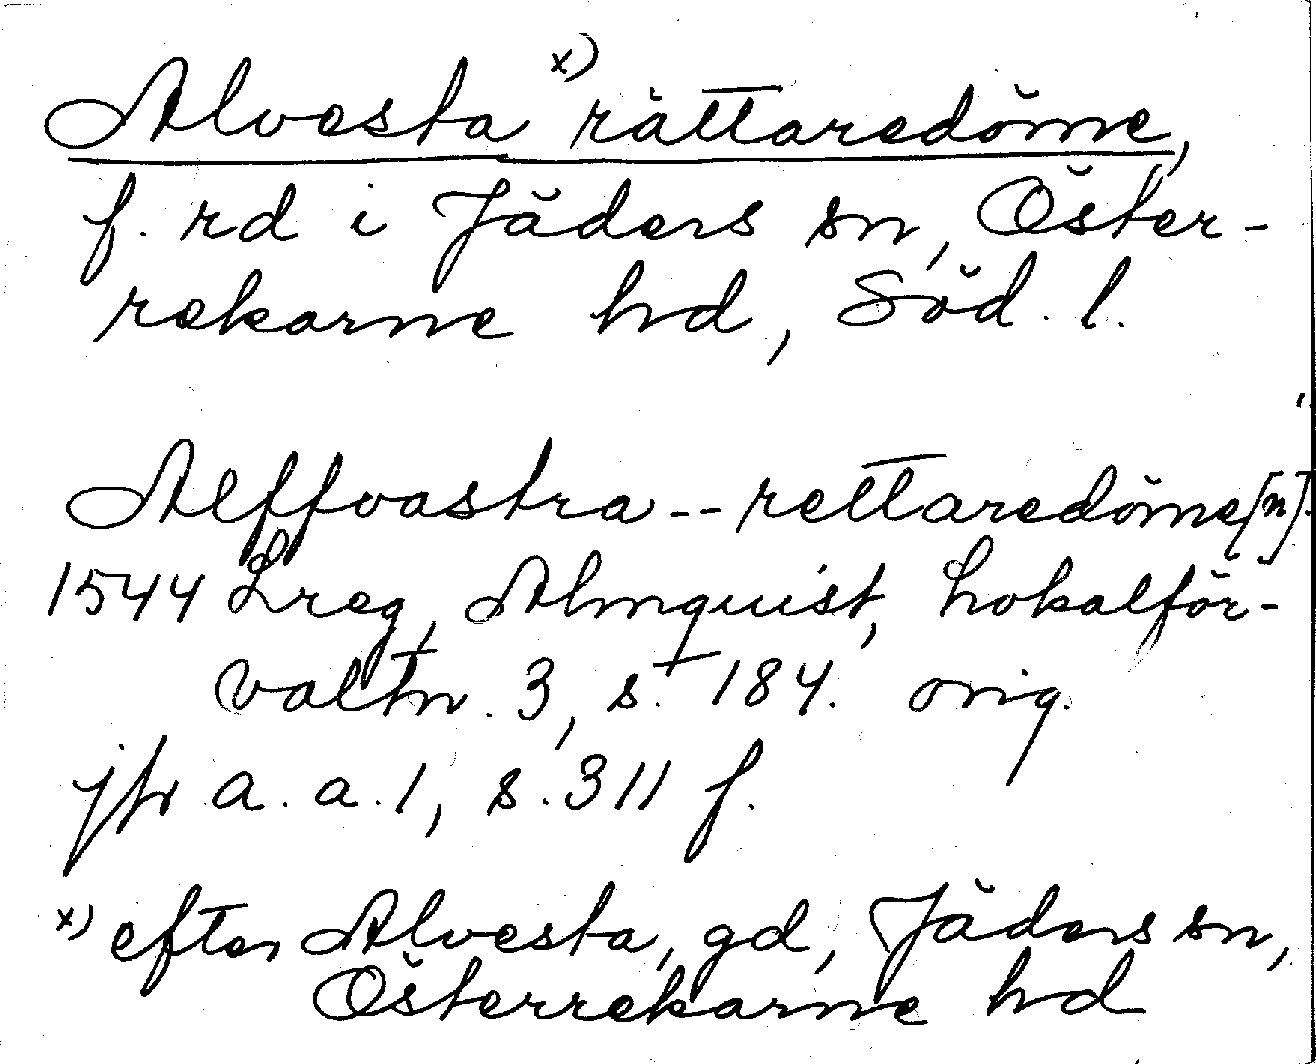 Alvesta x) rättaredöme,
f. rd i Jäders sn, Öster-
rekarne hd, Söd. l.
Alffvastra -- rettaredöme[n].
1544 Lreg, Almquist, Lokalför-
valtn. 3, s. 184. orig.
jfr a. a. 1, s. 311 f.
x) efter Alvesta, gd, Jäders sn,
Österrekarne hd